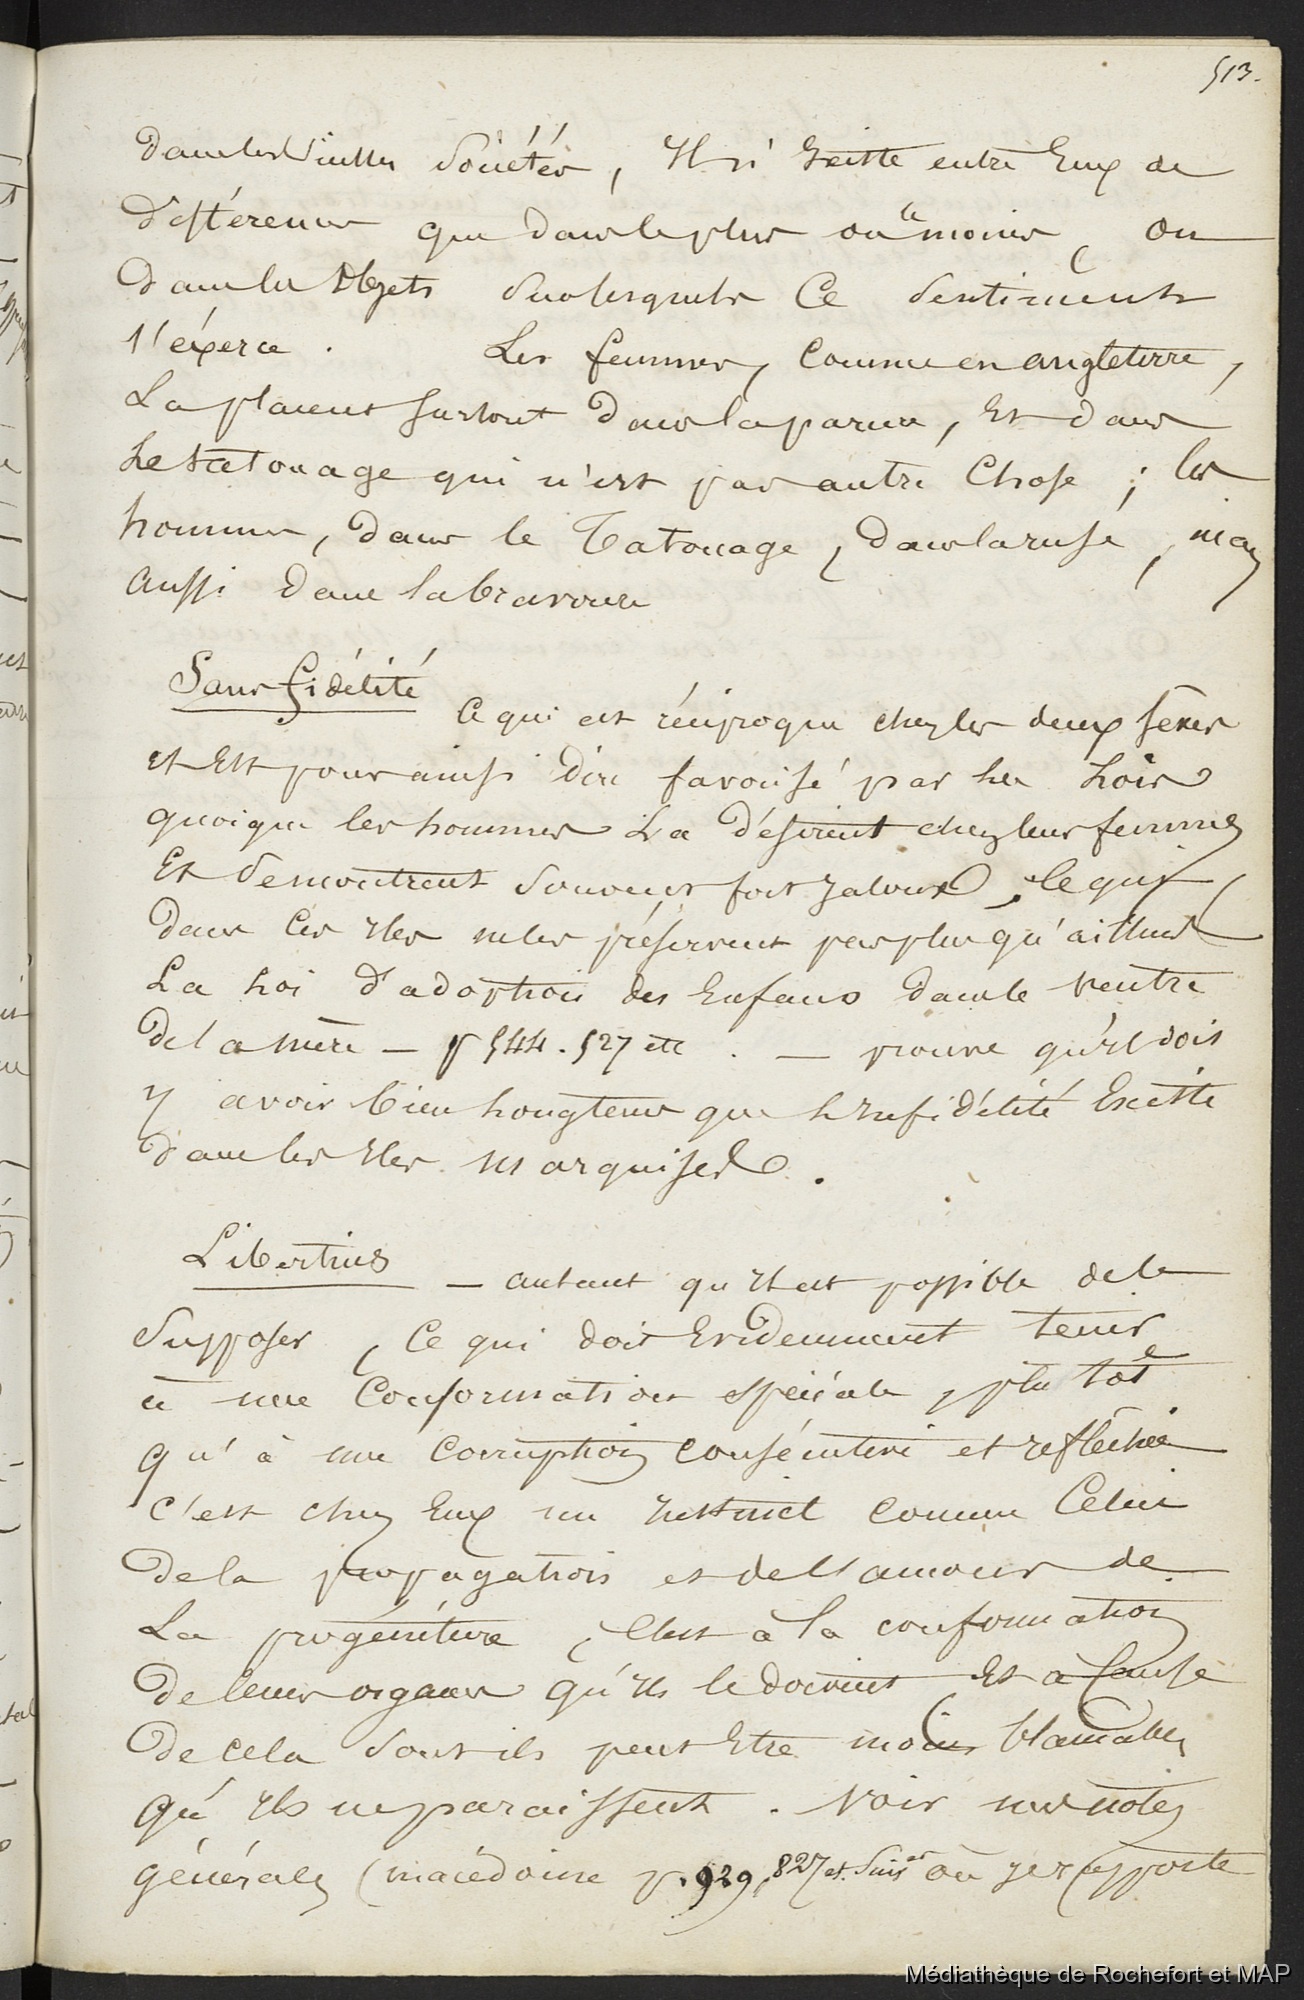 513.
dans les Vieilles Sociétés, Il n'existe entre Eux de
différences que dans le plus ou le moins, ou
dans les Objets sur lesquels Ce Sentiment
s'éxerce. Les femmes, Comme en angleterre,
La placent surtout dans la parure, Et dans
Le tatouage qui n'est pas autre Chose ; les
hommes, dans le Tatouage, dans la ruse, mais
aussi dans la bravoure
Sans fidélité Ce qui est réciproque chez les deux sexes
et Est pour ainsi dire favorisé par les Lois
quoique les hommes La désirent chez leurs femmes
Et Se montrent Souvent fort Jaloux, ce qui
dans Ces Iles ne les préservent pas plus qu'ailleurs
La Loi d'adoption des Enfans dans le ventre
de la mère — p 544. 527 etc. — prouve qu'il doit
y avoir bien Longtems que L'Infidélité Existe
dans les Iles marquises.
Libertins — autant qu'il est possible de le
Supposer, Ce qui doit Evidemment tenir
à une Conformation spéciale, plutot
qu'à une Corruption consécutive et réfléchie
c'est chez Eux un Instinct comme Celui
de la propagation et de l'amour de
La progéniture, C'est à la conformation
de leurs organes qu'ils le doivent Et a Cause
de cela Sont ils peut Etre moins blamables
qu'Ils ne paraissent. Voir mes notes
générales (macédoine p. 929, 827 et Suiv. où Je rapporte
Médiathèque de Rochefort et MAP